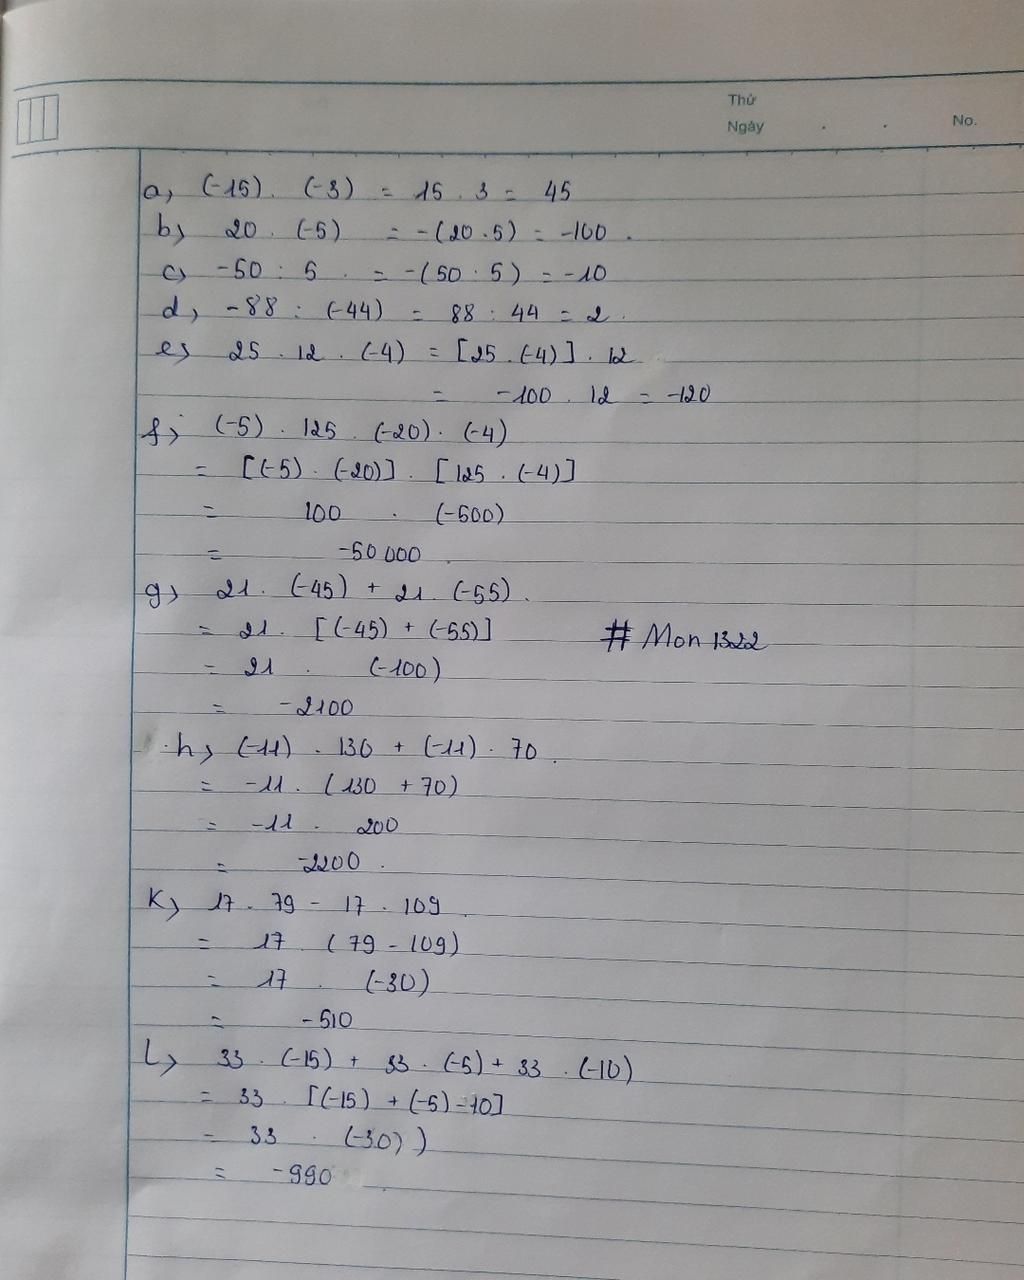 Thứ
Ngày . . No.
a, (-15). (-3) = 15 . 3 = 45
b, 20 . (-5) = -(20 . 5) = -100 .
c, -50 : 5 . = -(50 : 5) = -10
d, -88 : (-44) = 88 : 44 = 2 .
e, 25 . 12 . (-4) = [25 . (-4)] . 12
= -100 . 12 = -120
f, (-5) . 125 . (-20) . (-4)
= [(-5) . (-20)] . [125 . (-4)]
= 100 . (-500)
= -50 000 .
g, 21 . (-45) + 21 . (-55) .
= 21 . [(-45) + (-55)]
# Mon 1322
= 21 . (-100)
= -2100
h, (-11) . 130 + (-11) . 70 .
= -11 . (130 + 70)
= -11 . 200
= -2200 .
K, 17 . 79 - 17 . 109 .
= 17 . (79 - 109)
= 17 . (-30)
= -510
L, 33 . (-15) + 33 . (-5) + 33 . (-10)
= 33 . [(-15) + (-5) - 10]
= 33 . (-30) )
= -990